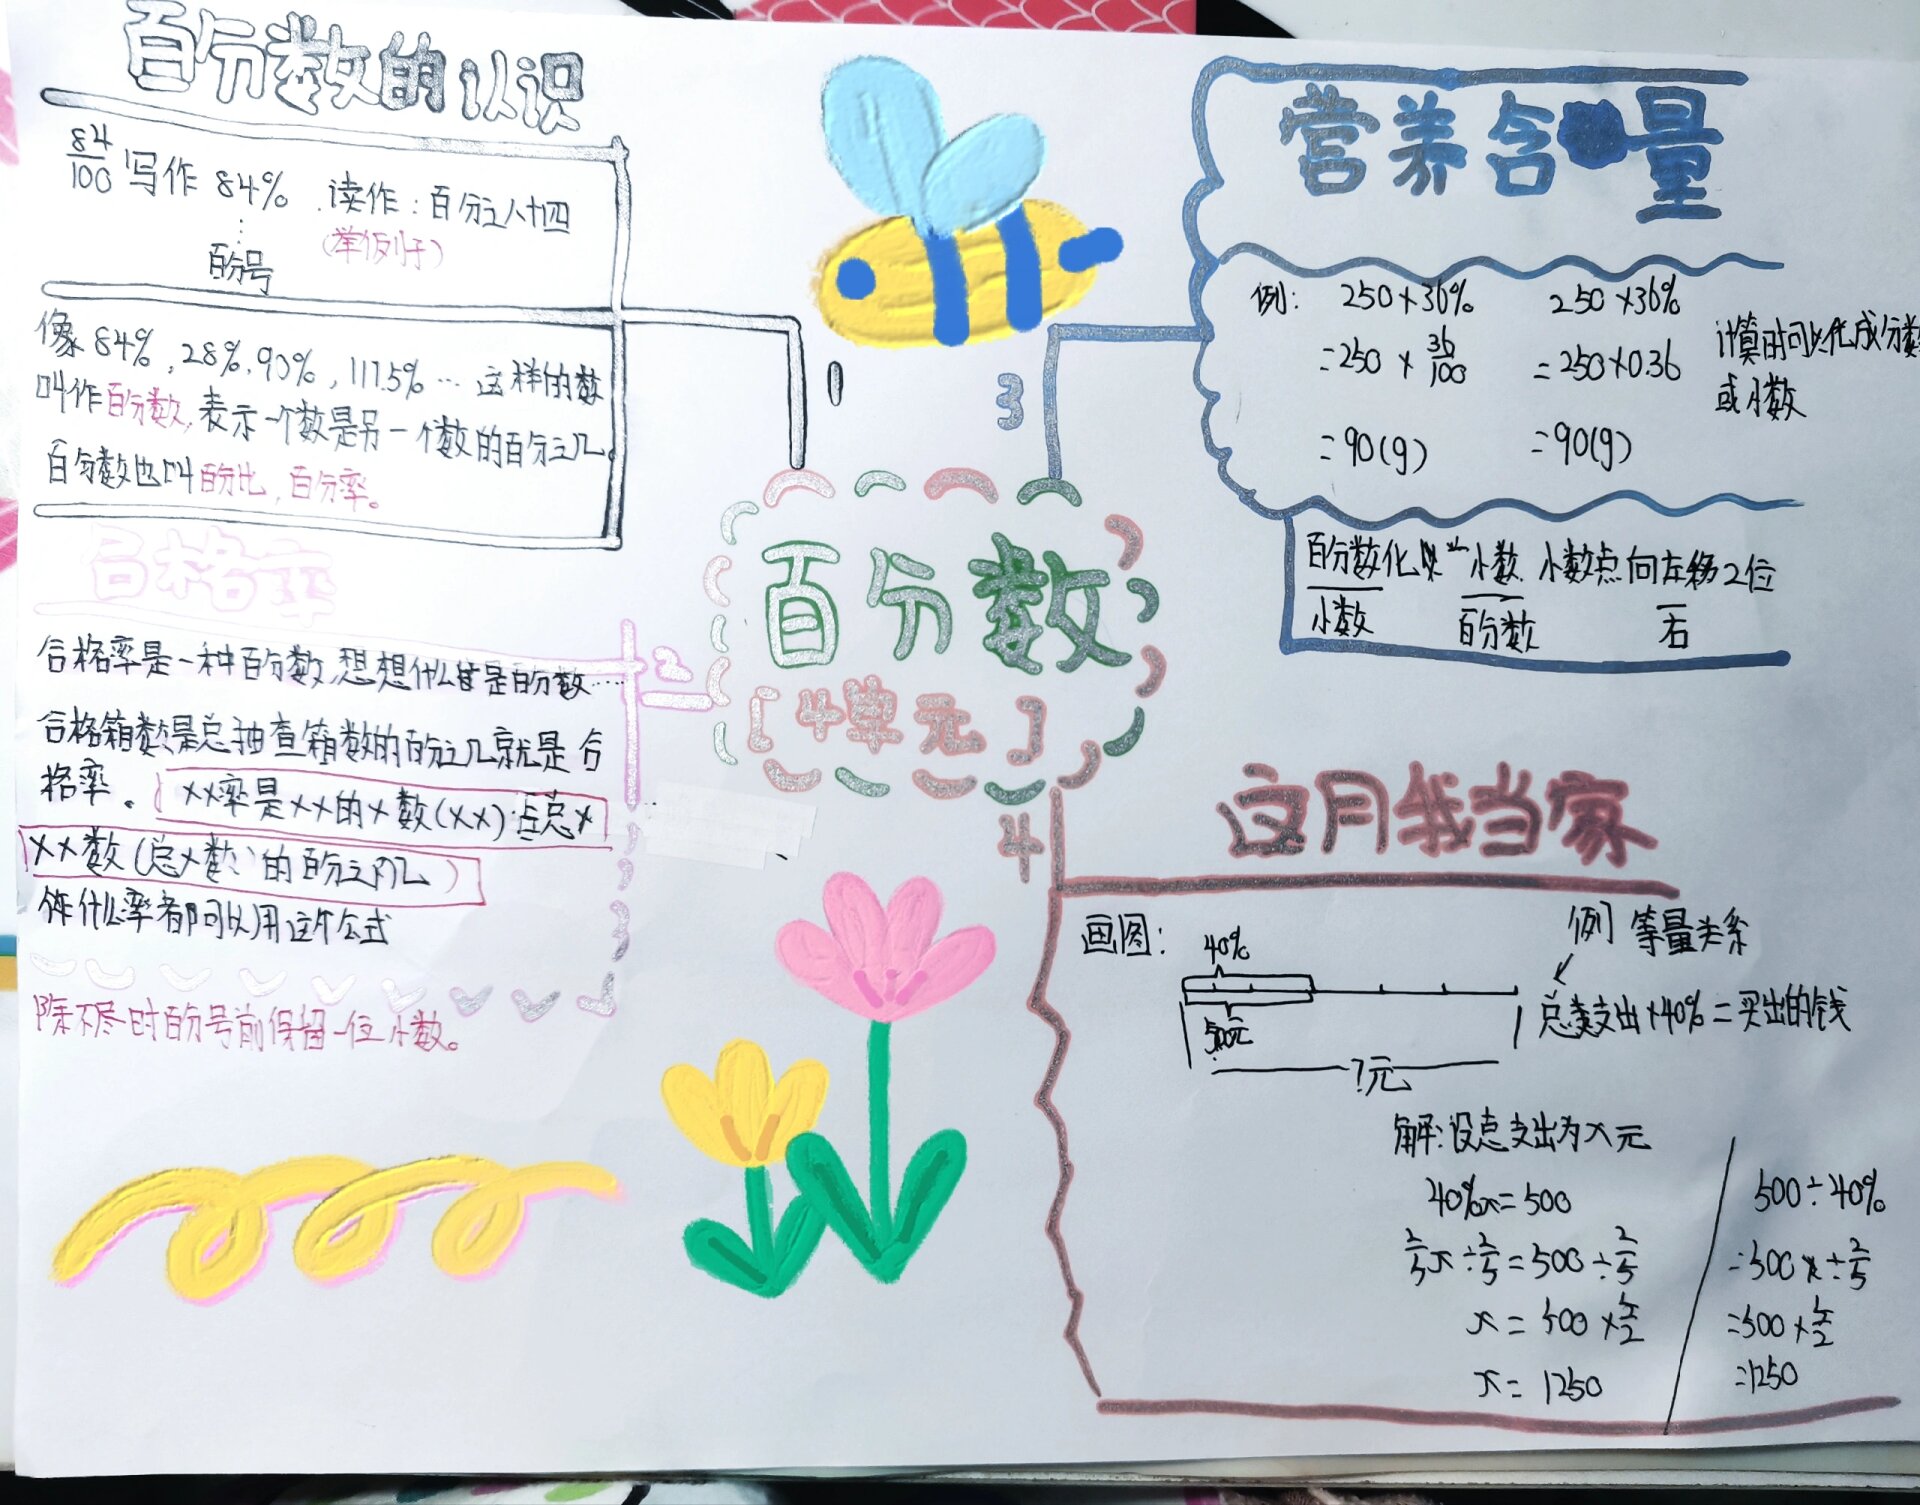 百分数的认识
84/100 写作 84% 读作：百分之八十四
⋮ (举例子)
百分号
像 84%，28%，90%，117.5% … 这样的数
叫作百分数，表示一个数是另一个数的百分之几。
百分数也叫百分比，百分率。
1
合格率
2
合格率是一种百分数，想想什么是百分数……
合格箱数是总抽查箱数的百分之几就是合
格率。 XX率是XX的X数(XX)占总X
XX数(总X数)的百分之几
什么率都可以用这个公式
除不尽时百分号前保留一位小数。
百分数
[4单元]
3
营养含量
例：
250×36%
=250×36/100
=90(g)
250×36%
=250×0.36
=90(g)
计算时可以化成分数
或小数
百分数化 小数 小数点向左移2位
小数 百分数 右
4
这月我当家
画图：
40%
500元
?元
例 等量关系
支出×40%=买出的钱
解：设总支出为x元
40%x=500
2/5x÷2/5=500÷2/5
x=500×5/2
x=1250
500÷40%
=500÷2/5
=500×5/2
=1250